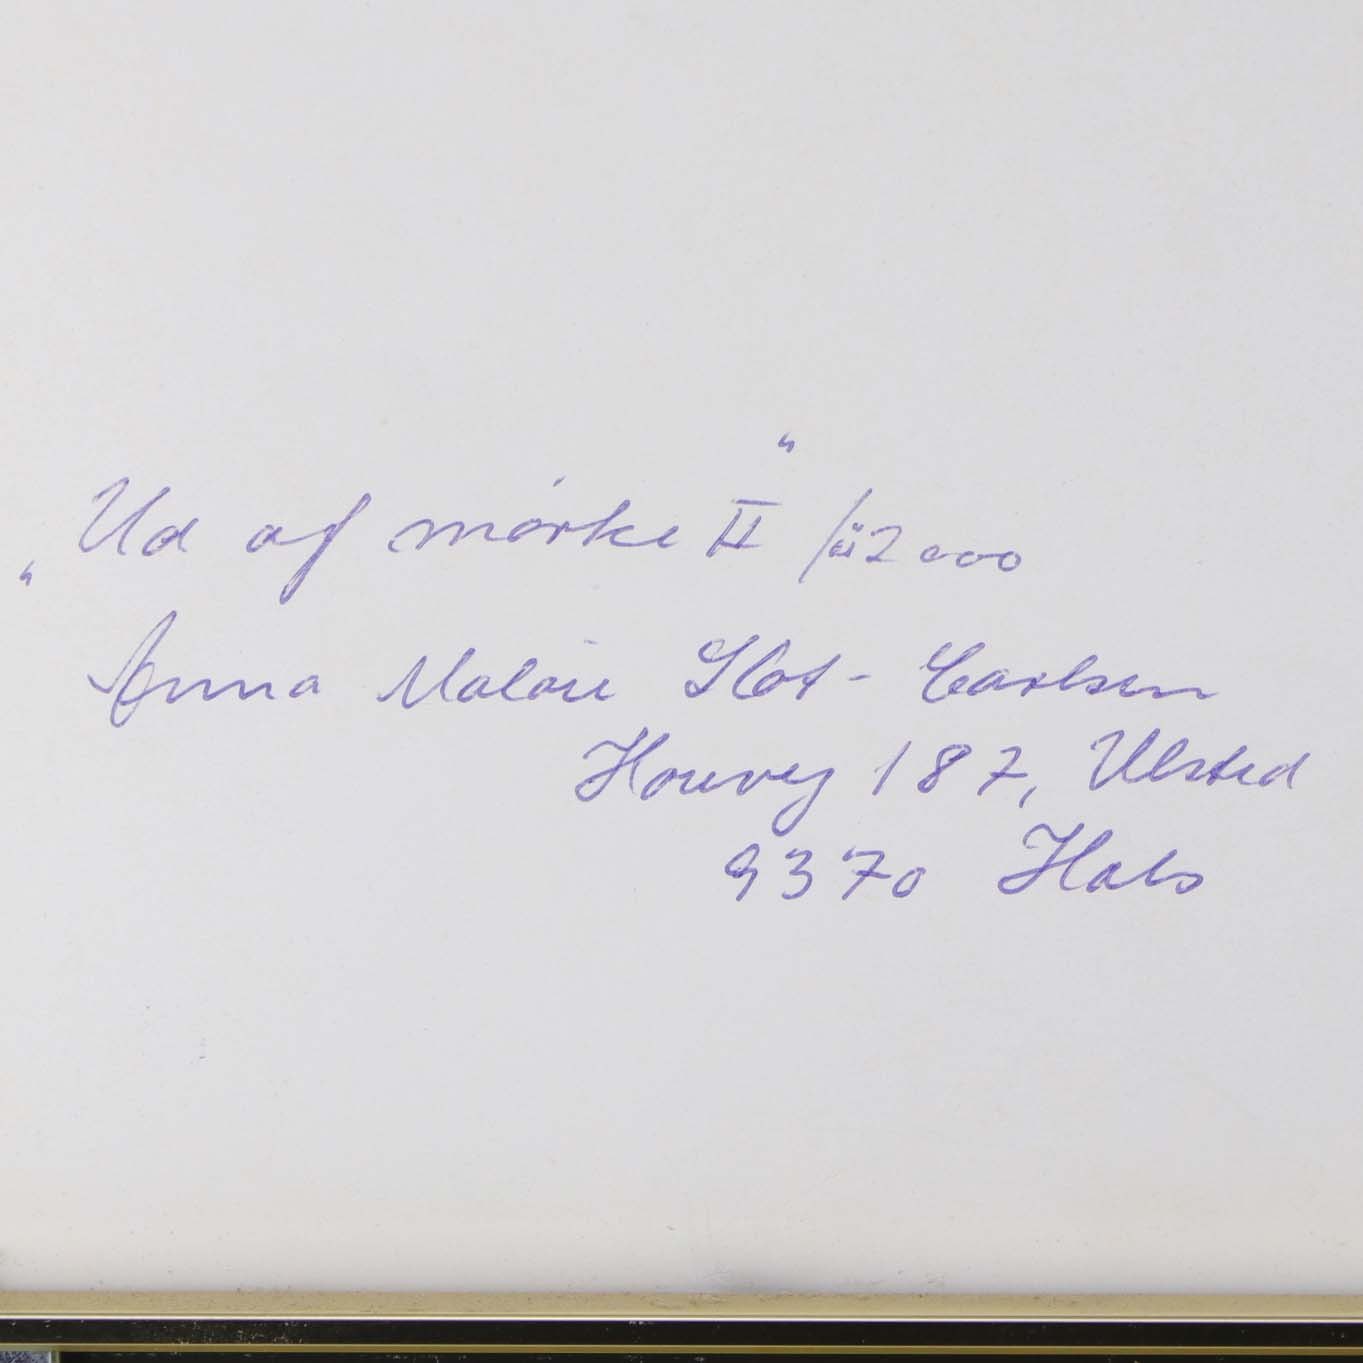 "Ud af mørke II"
Anna Malare Slot-Carlsen
Houvej 187, Ulsted
9370 Hals